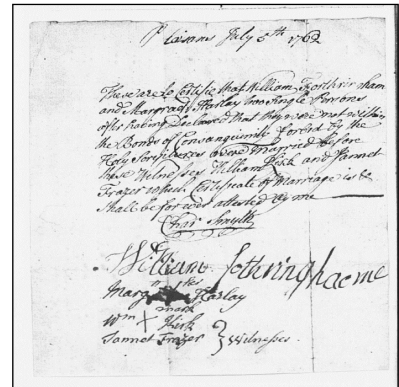 Pleasans July 5th 1762
These are to Certifie that William Forthrirham
and Margrad Harlay two Single Persons
after having Declared that they were not within
the Bonds of Consanguinity forbed by the
Holy Scriptures were Married Before
these Witneses William Kirk and Jannet
Frazer which Certificate of Marriage is &
Shall be for west attested by me
Chas Smyth
William Fothringhaeme
Marg Harlay
Wm X mark Kirk
Jannet Frazer } Witneses.